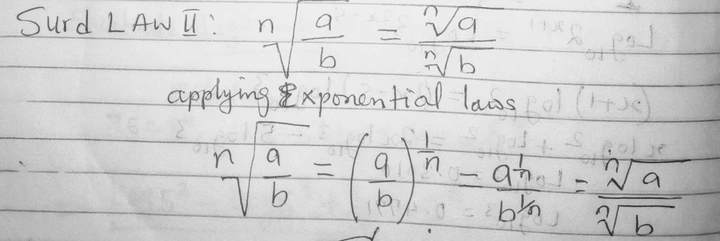 Surd LAW II: ⁿ√(a/b) = ⁿ√a / ⁿ√b
applying Exponential laws
ⁿ√(a/b) = (a/b)^(1/n) = a^(1/n) / b^(1/n) = ⁿ√a / ⁿ√b